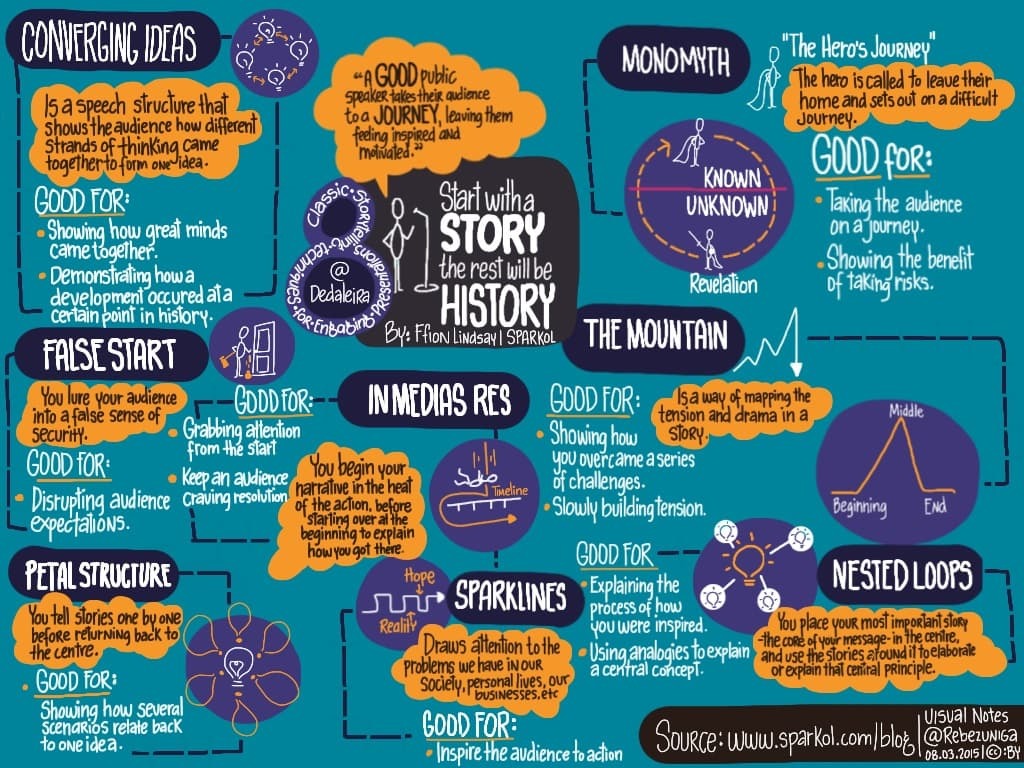 CONVERGING IDEAS
Is a speech structure that
shows the audience how different
strands of thinking came
together to form one idea.
GOOD FOR:
• Showing how great minds
came together.
• Demonstrating how a
development occured at a
certain point in history.
"A GOOD public
speaker takes their audience
to a JOURNEY, leaving them
feeling inspired and
motivated."
8 Classic • Storytelling • techniques • for • Engaging • Presentations
@
Dedaleira
Start with a
STORY
the rest will be
HISTORY
By: Ffion Lindsay | SPARKOL
MONOMYTH
"The Hero's Journey"
The hero is called to leave their
home and sets out on a difficult
Journey.
KNOWN
UNKNOWN
Revelation
GOOD for:
• Taking the audience
on a journey.
• Showing the benefit
of taking risks.
FALSE START
You lure your audience
into a false sense of
security.
GOOD FOR:
• Disrupting audience
expectations.
IN MEDIAS RES
GOOD FOR:
• Grabbing attention
from the start
• Keep an audience
craving resolution.
You begin your
narrative in the heat
of the action, before
starting over at the
beginning to explain
how you got there.
Timeline
THE MOUNTAIN
Is a way of mapping the
tension and drama in a
story.
GOOD FOR:
• Showing how
you overcame a series
of challenges.
• Slowly building tension.
Middle
Beginning
End
PETAL STRUCTURE
You tell stories one by one
before returning back to
the centre.
• GOOD FOR:
Showing how several
scenarios relate back
to one idea.
Hope
Reality
SPARKLINES
Draws attention to the
problems we have in our
society, personal lives, our
businesses, etc
GOOD FOR:
• Inspire the audience to action
NESTED LOOPS
GOOD FOR
• Explaining the
process of how
you were inspired.
• Using analogies to explain
a central concept.
You place your most important story
-the core of your message- in the centre,
and use the stories around it to elaborate
or explain that central principle.
Source: www.sparkol.com/blog
Visual Notes
@Rebezuniga
08.03.2015 | ©:BY